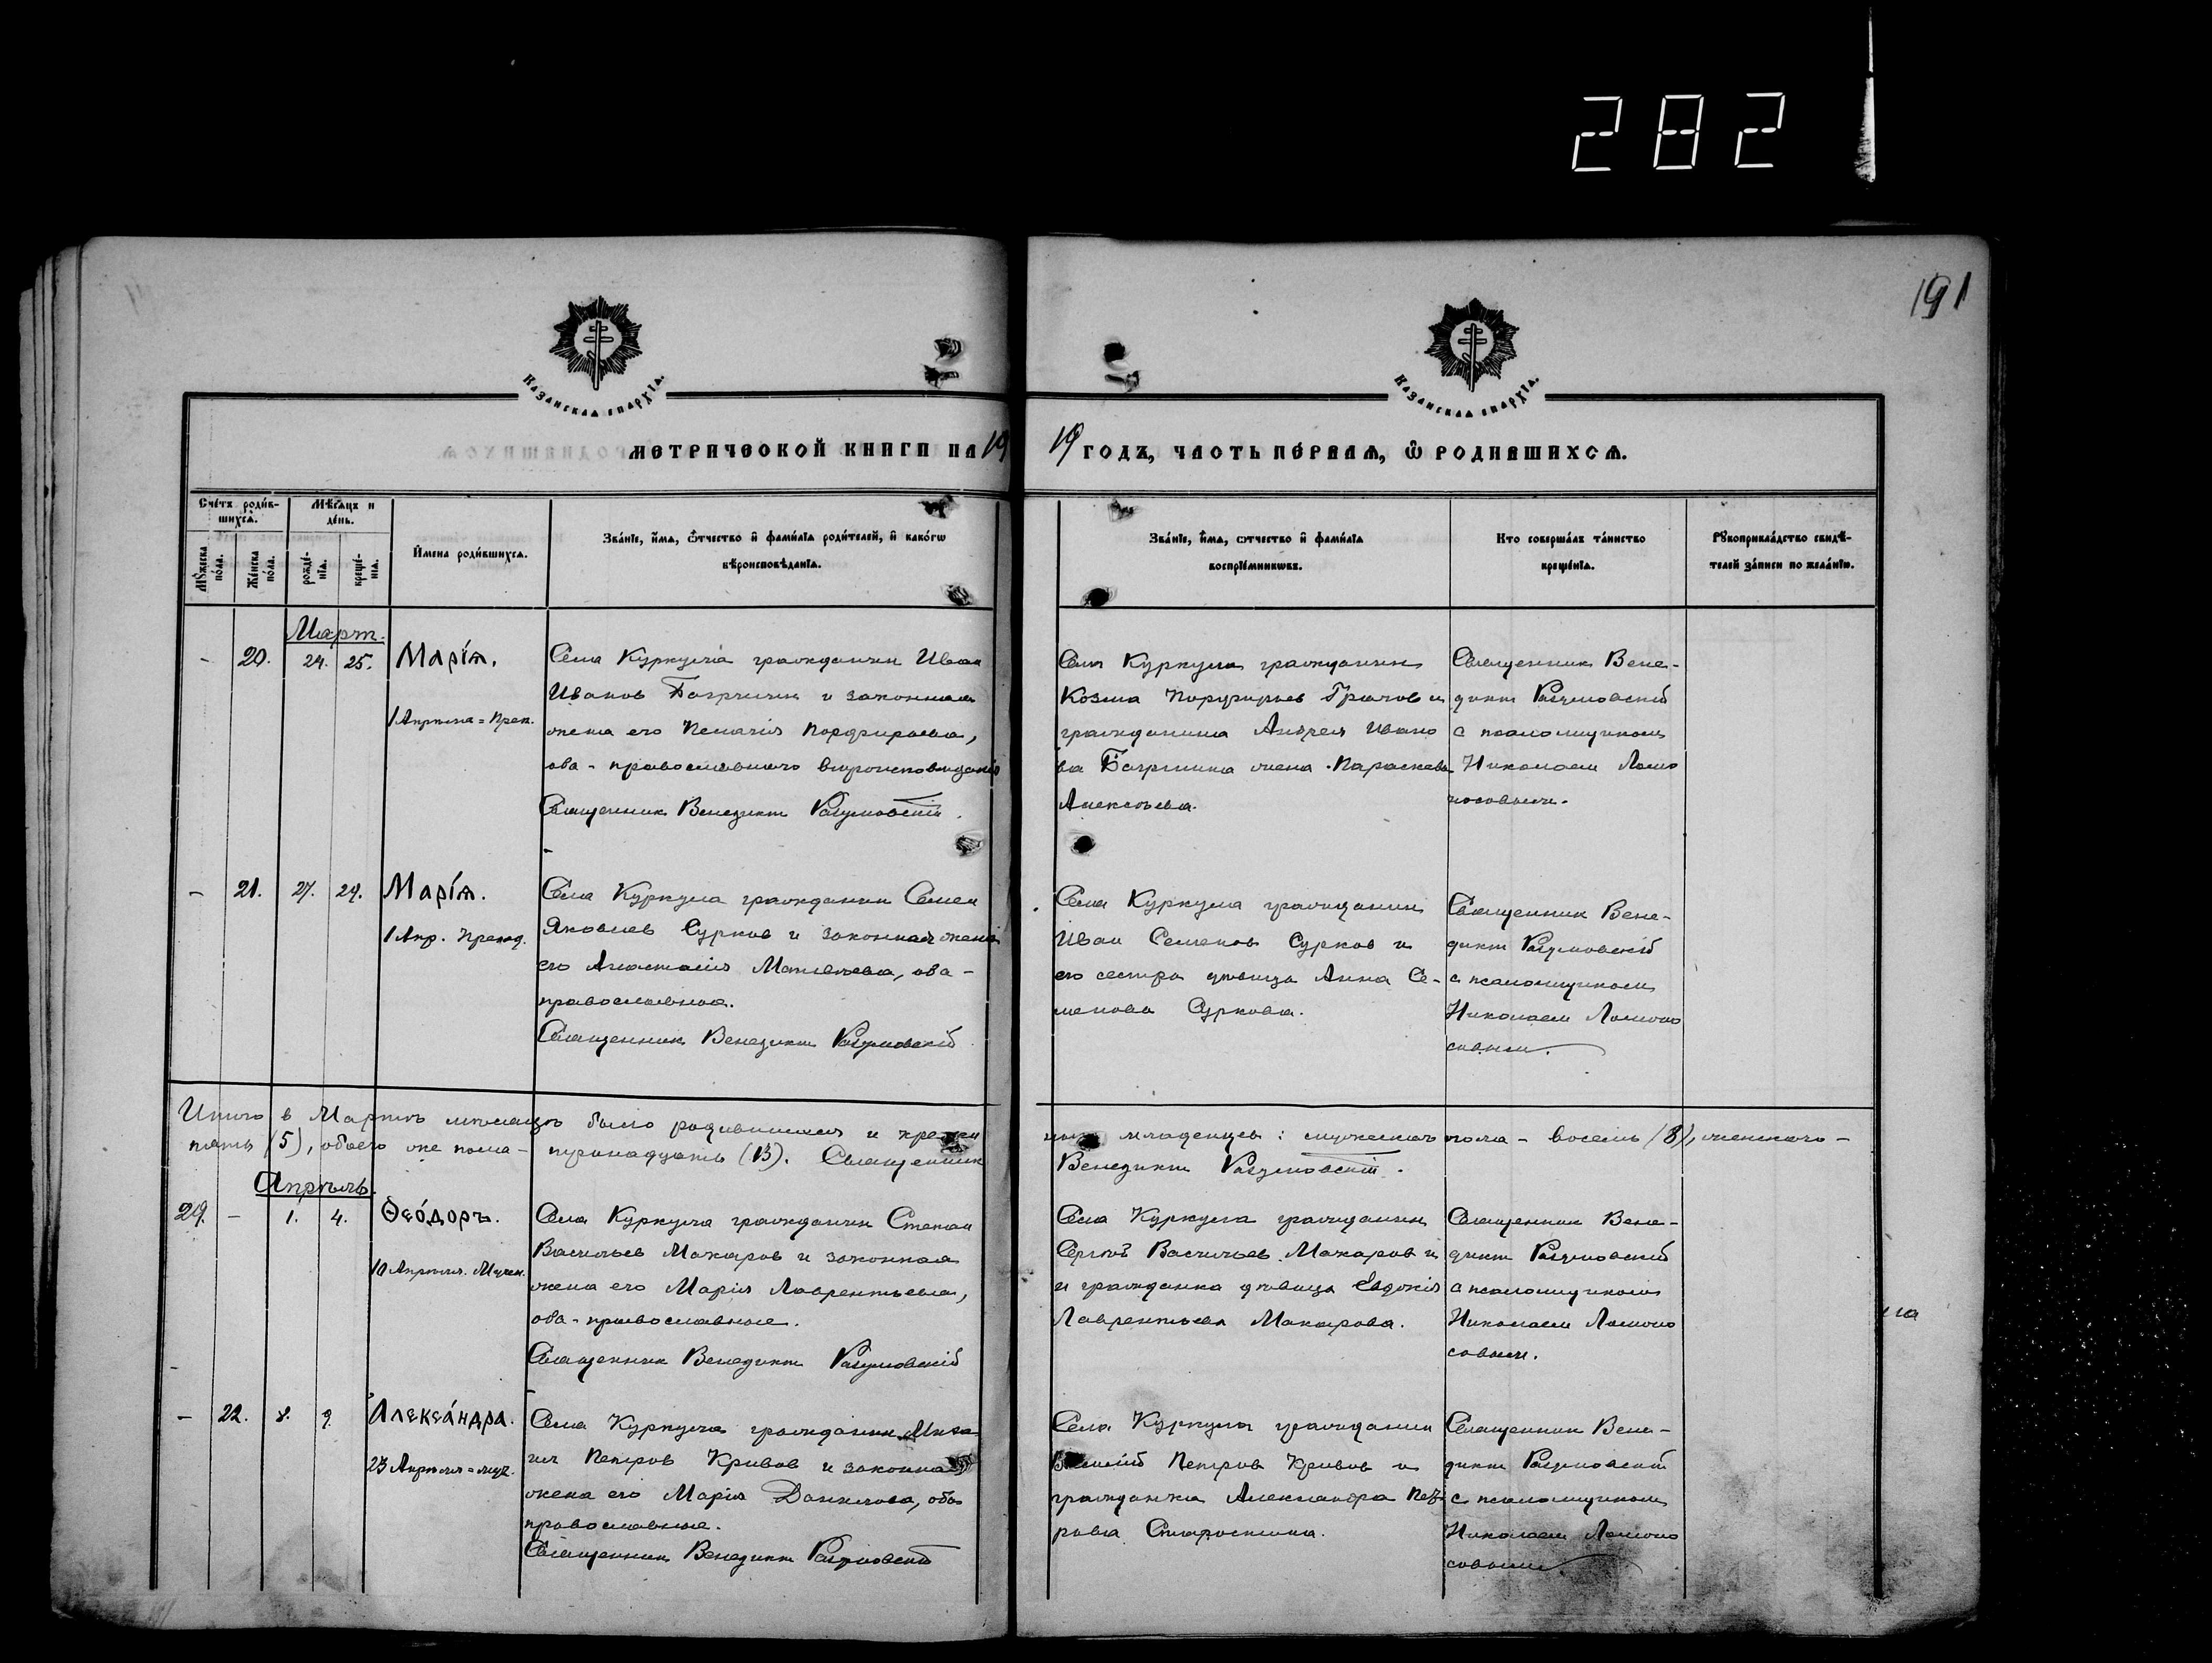 282
191
Казанская епархїа.
Казанская епархїа.
метрической книги на 19
19 годъ, часть первая, ѡ родившихся.
Счетъ родив-
шихся.
Мѣсяцъ и
день.
Мꙋжеска
пола.
Женска
пола.
рожде-
нїа.
креще-
нїа.
Имена родившихся.
Званїе, имя, ѿчество и фамилїа родителей, и какогѡ
вѣроисповѣданїа.
Званїе, имя, ѿчество и фамилїа
воспрїемникѡвъ.
Кто совершалъ таинство
крещенїа.
Рꙋкоприкладство свидѣ-
телей записи по желанїю.
Март.
- 20. 24. 25. Марія.
1 Апрѣля = Преп.
Села Куркуля гражданин Иван
Иванов Багрянин и законная
жена его Пелагія Порфирьева,
оба - православнаго вѣроисповѣданія
Священник Венедикт Разумовскій.
Села Куркуля гражданин
Козма Порфирьев Грачов и
гражданина Андрея Ивано
ва Багрянина жена Параскева
Алексѣева.
Священник Вене-
дикт Разумовскій
с псаломщиком
Николаем Ломо
носовым.
- 21. 27. 29. Марія.
1 Апр. Препод.
Села Куркуля гражданин Семен
Яковлев Сурков и законная жена
его Анастасія Матвѣева, оба -
православные.
Священник Венедикт Разумовскій
Села Куркуля гражданин
Иван Семенов Сурков и
его сестра дѣвица Анна Се-
менова Суркова.
Священник Вене-
дикт Разумовскій
с псаломщиком
Николаем Ломоно
совым.
Итого в Мартѣ мѣсяцѣ было родившихся и креще
ных младенцев: мужеского пола - восемь (8), женского -
пять (5), обоего же пола - тринадцать (13). Священник
Венедикт Разумовскій.
Апрѣль.
29. - 1. 4. Ѳеодоръ.
10 Апрѣля. Мучен.
Села Куркуля гражданин Степан
Васильев Макаров и законная
жена его Марія Лаврентьева,
оба - православные.
Священник Венедикт Разумовскій
Села Куркуля гражданин
Сергѣй Васильев Макаров и
и гражданка дѣвица Евдокія
Лаврентьева Макарова.
Священник Вене-
дикт Разумовскій
с псаломщиком
Николаем Ломоно
совым.
- 22. 8. 9. Александра.
23 Апрѣля = муч.
Села Куркуля гражданин Миха
ил Петров Кривов и законная
жена его Марія Данилова, оба
православные.
Священник Венедикт Разумовскій
Села Куркуля гражданин
Петров Кривов и
гражданка Александра Пет
рова Старостина.
Священник Вене-
дикт Разумовскій
с псаломщиком
Николаем Ломоно
совым.